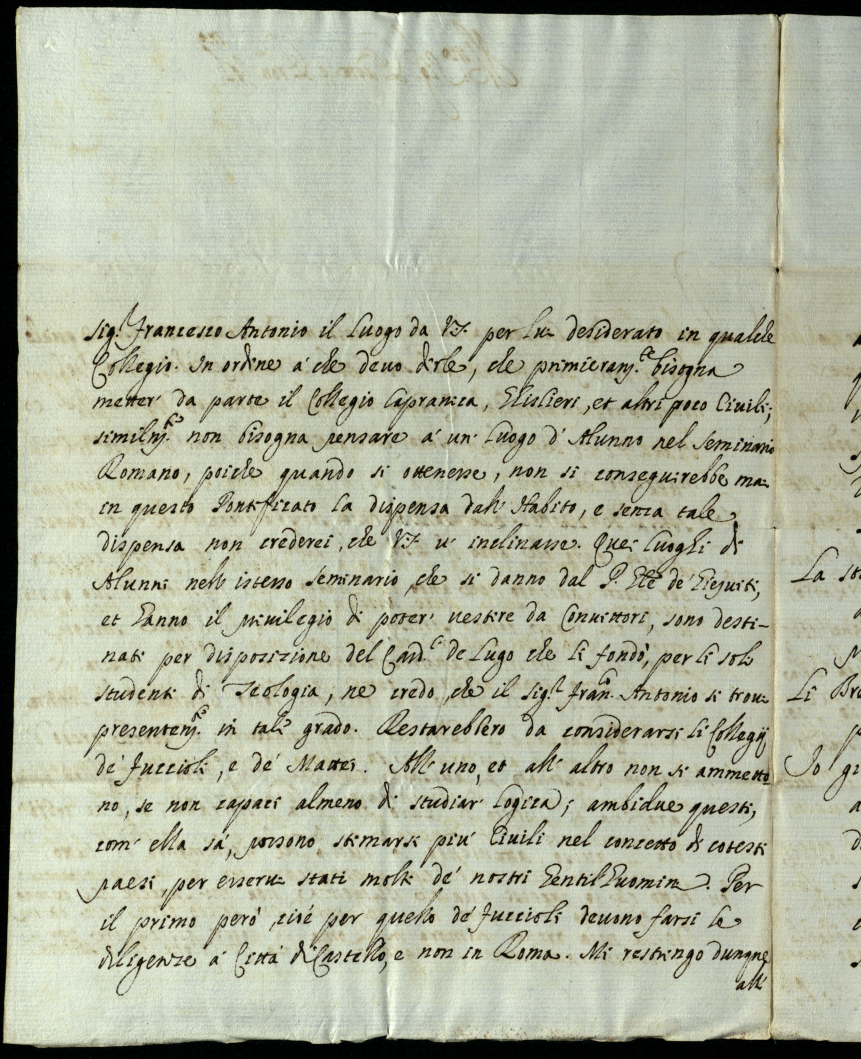 Sig.r Francesco Antonio il Luogo da V.S. per lui desiderato in qualche
Collegio. In ordine a' che devo dirle, che primieram.te bisogna
metter' da parte il Collegio Capranica, Ghislieri, et altri poco Civili;
similm.te non bisogna pensare a' un' Luogo d' Alunno nel Seminario
Romano, poiche quando si ottenesse, non si conseguirebbe mai
in questo Pontificato la dispensa dall' Habito, e senza tale
dispensa non crederei, che V.S. u' inclinasse. Quei luoghi di
Alunni nell' istesso Seminario, che si danno dal P. Gñle de' Giesuiti,
et hanno il privilegio di poter' vestire da Convittori, sono desti-
nati per disposizione del Card.le de Lugo che li fondò, per li soli
studenti di Teologia, ne credo, che il Sig.r Fran.co Antonio si trovi
presentem.te in tale grado. Restarebbero da considerarsi li Collegij
de' Fuccioli, e de' Mattei. All' uno, et all' altro non si ammetto-
no, se non capaci almeno di studiar' Logica; ambidue questi,
com' ella sà, possono stimarsi piu' Civili nel concetto di cotesti
paesi, per esservi stati molti de' nostri Gentilhuomini. Per
il primo però, cioè per quello de' Fuccioli devono farsi le
diligenze a' Città di Castello, e non in Roma. Mi restringo dunque
all'
La
Li Bre
Io